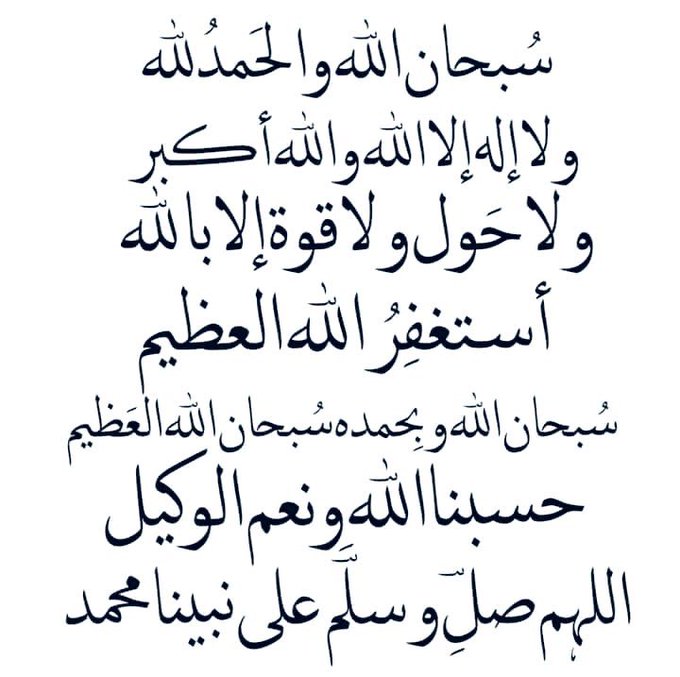 سُبحان الله والحَمدُ لله
ولا إله إلا الله والله أكبر
ولا حَول ولا قوة إلا بالله
أستغفِرُ الله العظيم
سُبحان الله وبِحمده سُبحان الله العَظيم
حسبنا الله ونعم الوكيل
اللهم صلِّ وسلَّم على نبينا محمد